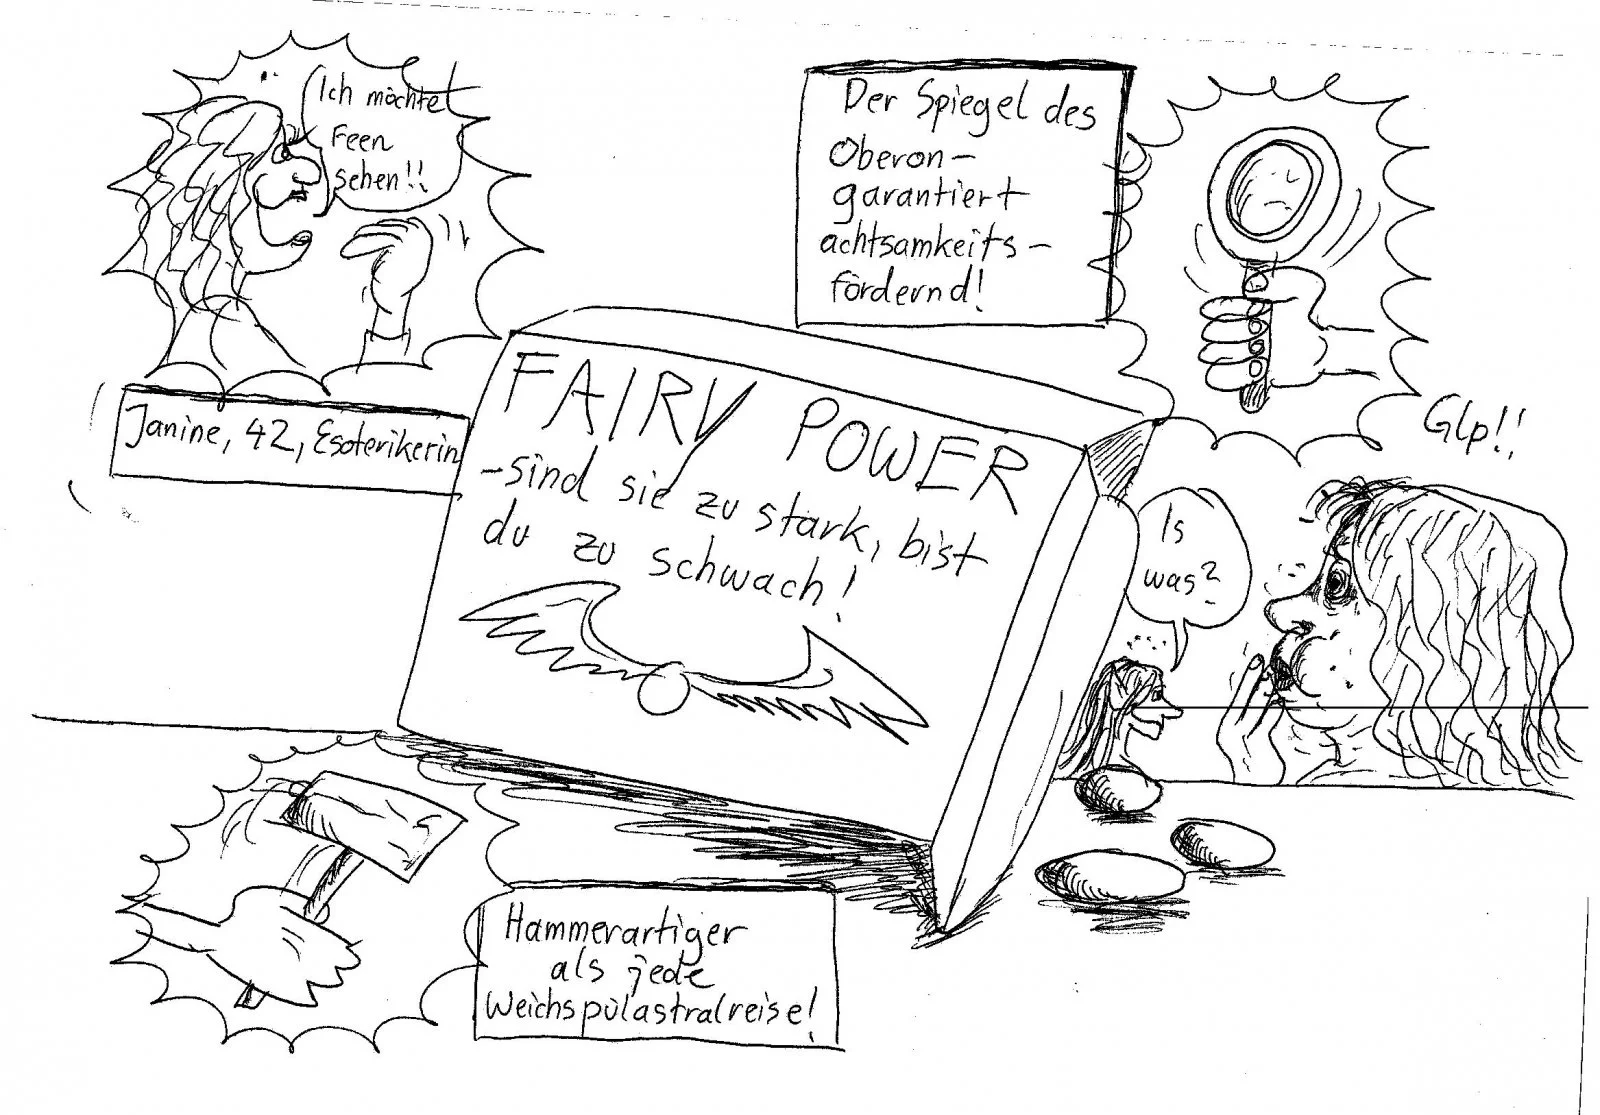 Ich möchte
Feen
sehen!!
Janine, 42, Esoterikerin
Der Spiegel des
Oberon-
garantiert
achtsamkeits-
fördernd!
FAIRY POWER
-sind sie zu stark, bist
du zu schwach!
Glp!!
Is
was?
Hammerartiger
als jede
Weichspülastralreise!